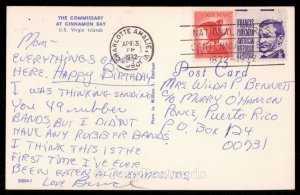 THE COMMISSARY
AT CINNAMON BAY
U.S. Virgin Islands
CHARLOTTE AMALIE, V.I.
APR 3
PM
1972
NATIONAL
CENTENNIAL
1872
Mom -
EVERYTHING'S
HERE. Happy Birthday
I WAS THINKING SENDING
YOU 49 RUBBER
BANDS BUT I DIDN'T
HAVE ANY RUBBER BANDS
I THINK THIS IS THE
FIRST TIME I'VE EVER
BEEN EATEN ALIVE
Love Bruce
Post Card
MRS WILDA P. BENNETT
c/o MORRY O'HANLON
PONCE, PUERTO RICO
P.O. BOX 124
00731